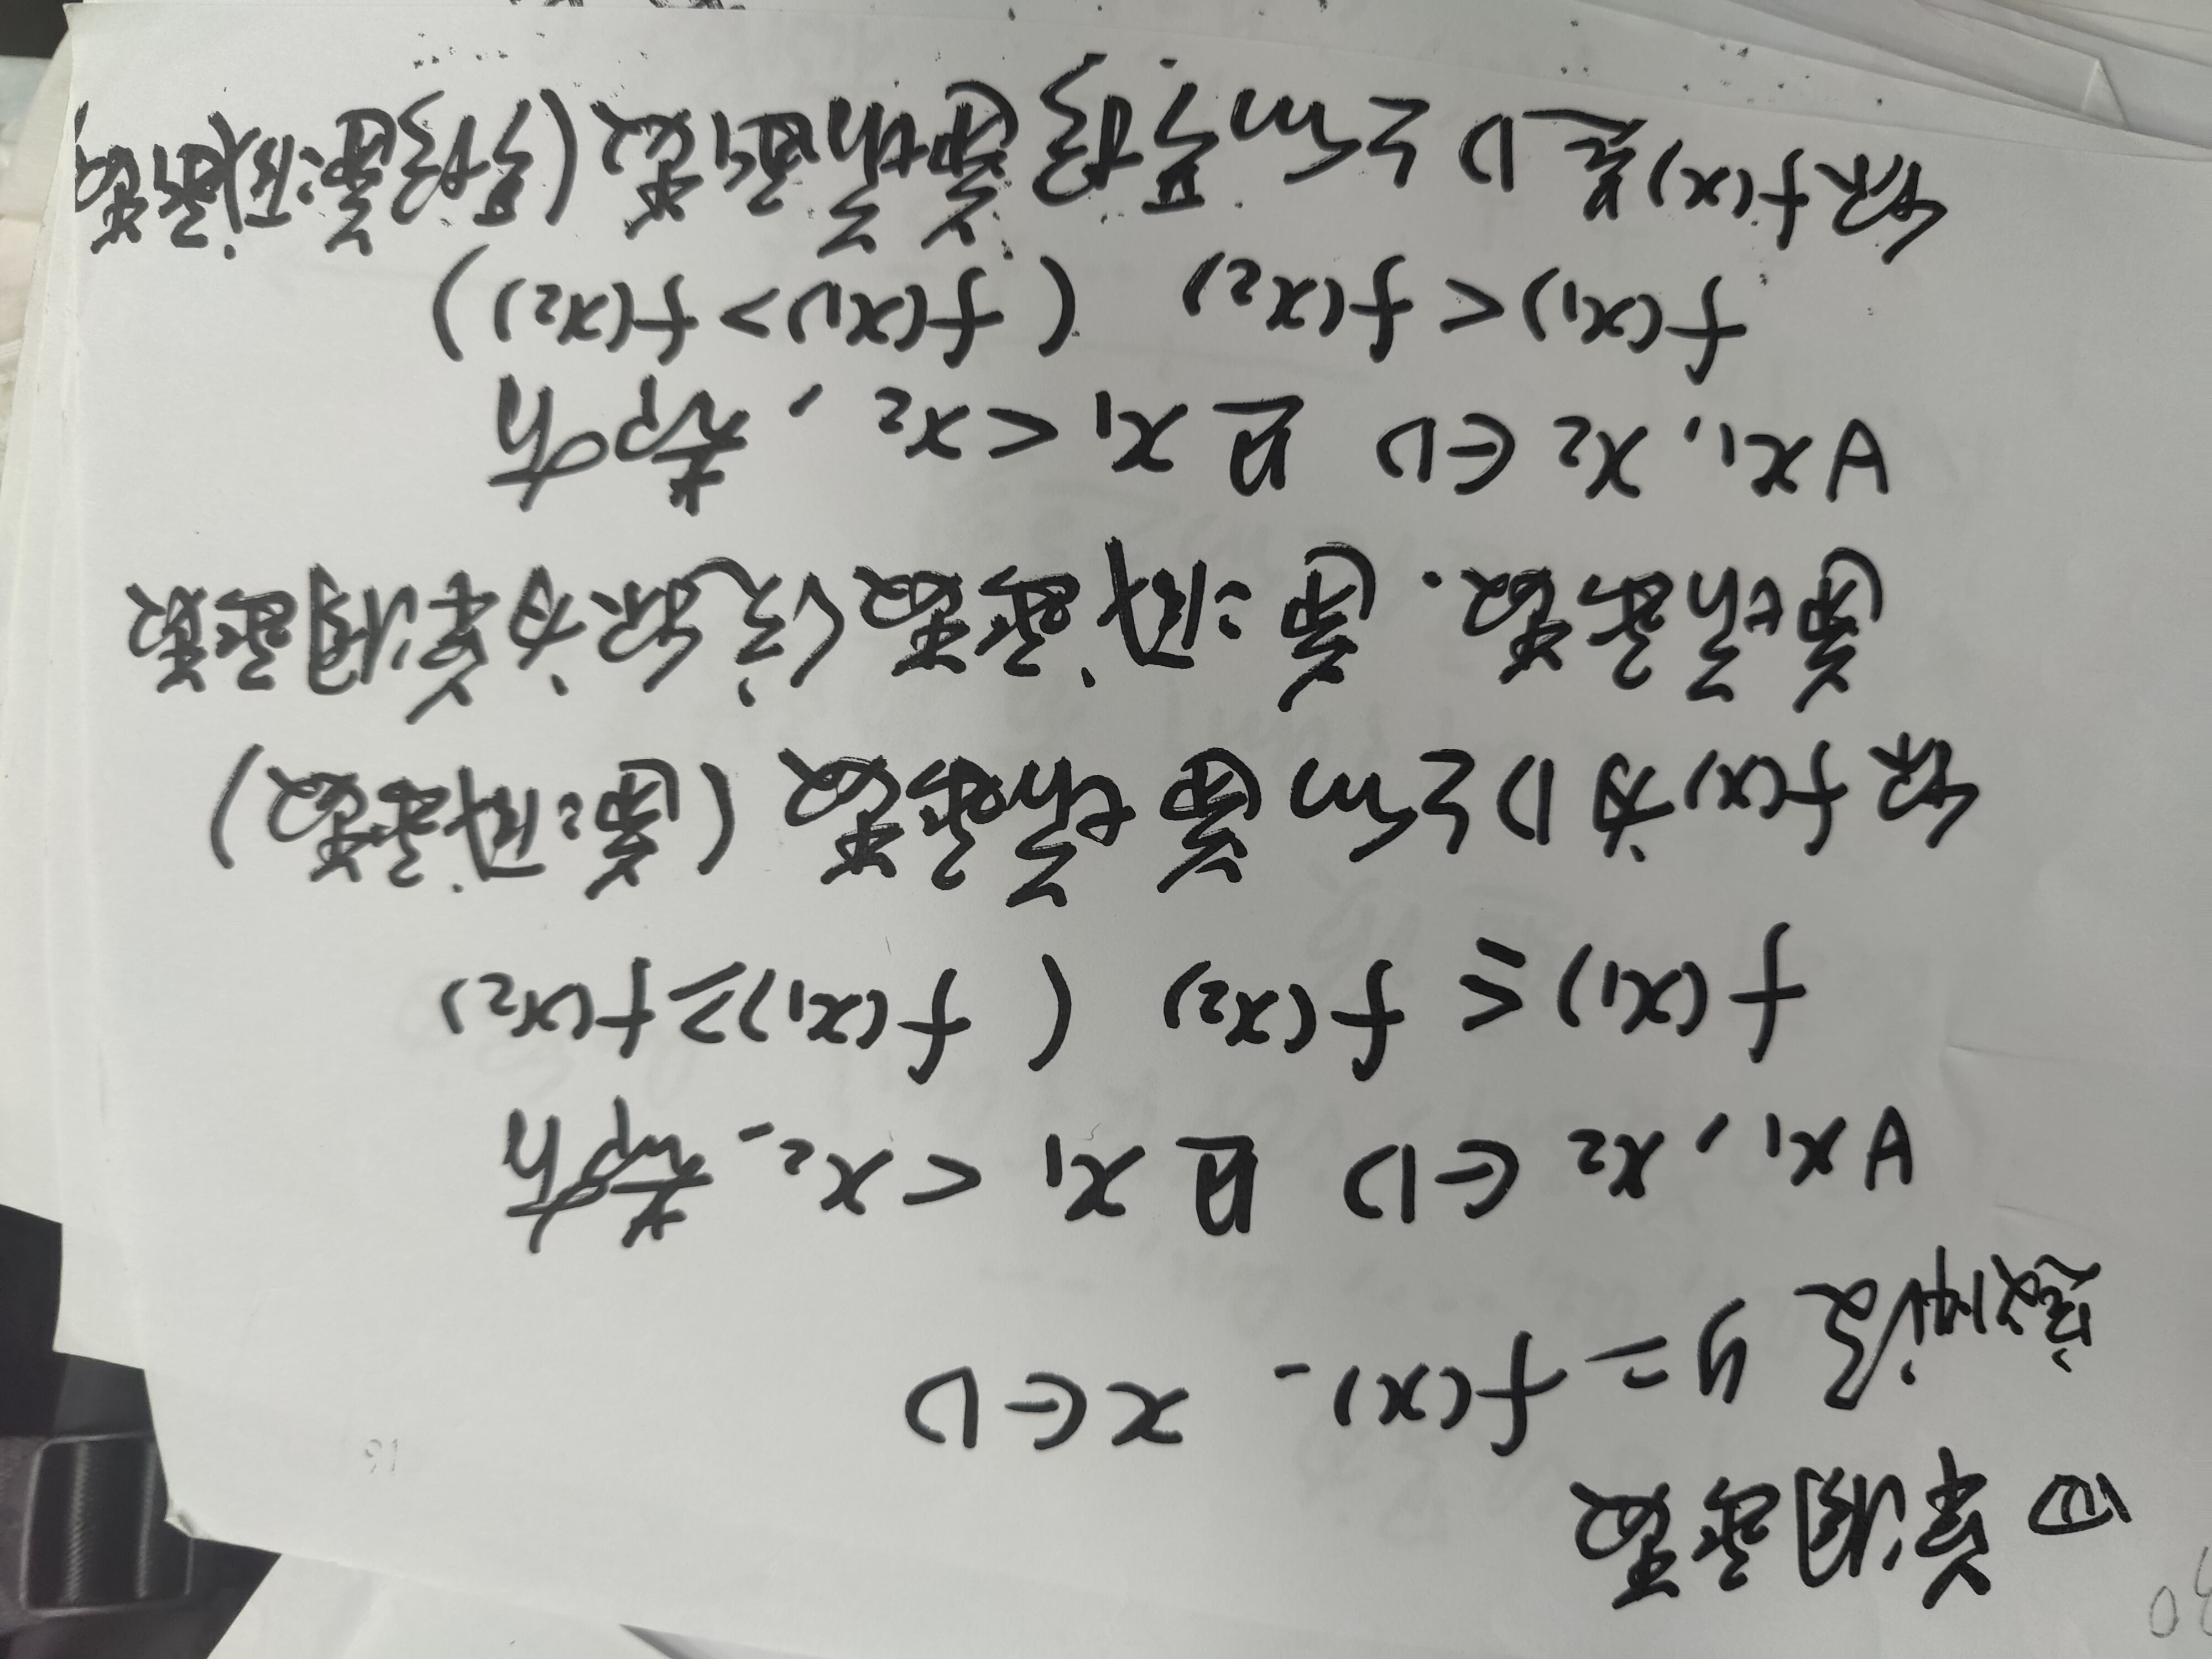 四 单调函数
定义4. 设 y=f(x), x∈D
∀x1, x2∈D 且 x1<x2, 都有
f(x1)≤f(x2) (f(x1)≥f(x2)
称f(x)为D上的单增函数(单减函数)
单增函数.单减函数统称为单调函数
∀x1, x2∈D 且 x1<x2, 都有
f(x1)<f(x2) (f(x1)>f(x2))
称f(x)是D上的严格单增函数(严格单减函数